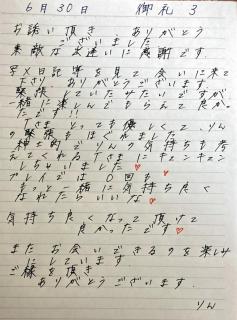 6月30日 御礼 3
お誘い頂き ありがとう
ございました
素敵な出逢いに感謝です。
写メ日記等を見て会いに来て
下さり ありがとうございます。
緊張していたみたいですが
一緒に楽しんでもらえて良かっ
たです!!
Tさま とっても優しくて、りん
の緊張もほぐれました
紳士的で りんの気持ちも考
えてくれるTさまにキュンキュン
しちゃいました♥
プレイでは 0回も
もっと一緒に気持ち良く
なれたらいいな♥
気持ち良くなって頂けて
良かったです♥
またお会いできるのを楽しみ
にしています。
ご縁を頂き
ありがとうございます。
りん